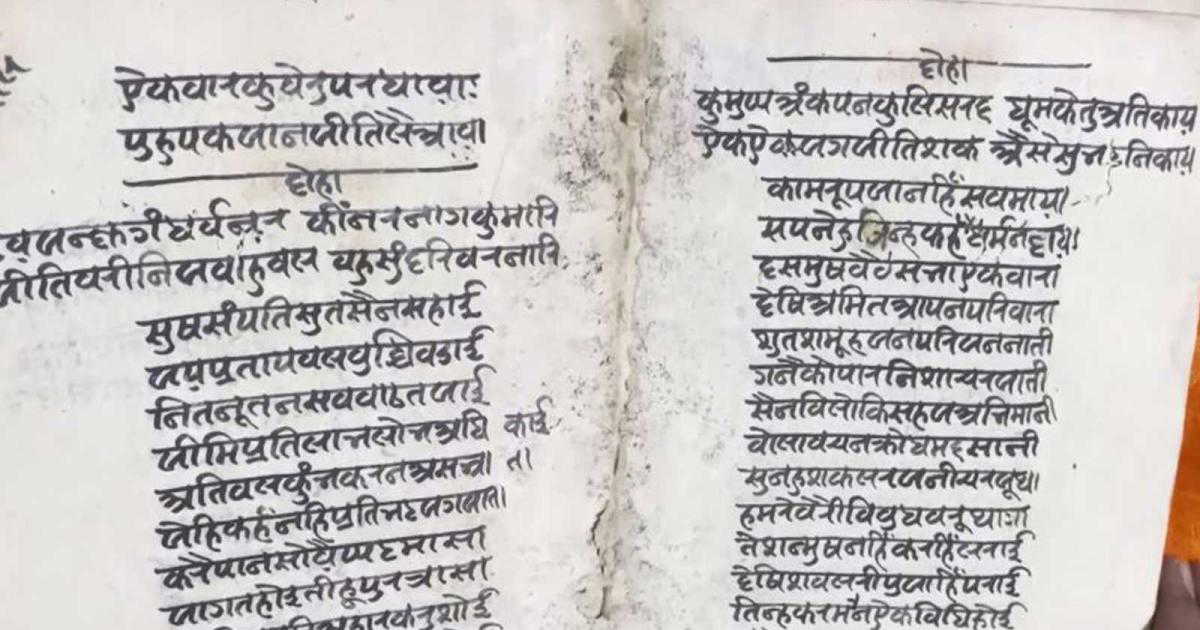 ऐकवारकुवेरुपरधावाः
पुहुपकजानजीतिलैआवा
दोहा
जीतिवरीनिजवाहुवल वहुसुंदरिवरनारि
सुषसंपतिसुतसैनसहाई
जयप्रतापवलवुधिवडाई
नितनूतनसववाढतजाई
जीमिप्रतिलाभलोभअधि काई
अतिवलकुंभकरनअसभ्रा ता
जेहिकहंनहिप्रतिभटजगजाता
करैपानसोवैषटमासा
जागतहोइतीहूपुरत्रासा
दोहा
कुमुषअंकपनकुलिसरद धूमकेतुअतिकाय
ऐकऐकजगजीतिशक अैसेसुभटनिकाय
कामरूपजानहिंसवमाया
सपनेहुजिन्हकहंधर्मनदाया
दसमुषवैठसभाएकवारा
देषिअमितआपनपरिवारा
शुतशमूहजनपरिजननाती
गनैकोपारनिशाचरजाती
सैनविलोकिसहजअभिमानी
वोलावचनक्रोधमदसानी
सुनहुशकलरजनीचरजूथा
हमरेवैरीविवुधवरूथा
तेशन्मुषनहिंकरहिंलराई
देषिशवलरीपुजाहिंपराई
तिन्हकरमरनएकविधिहोई